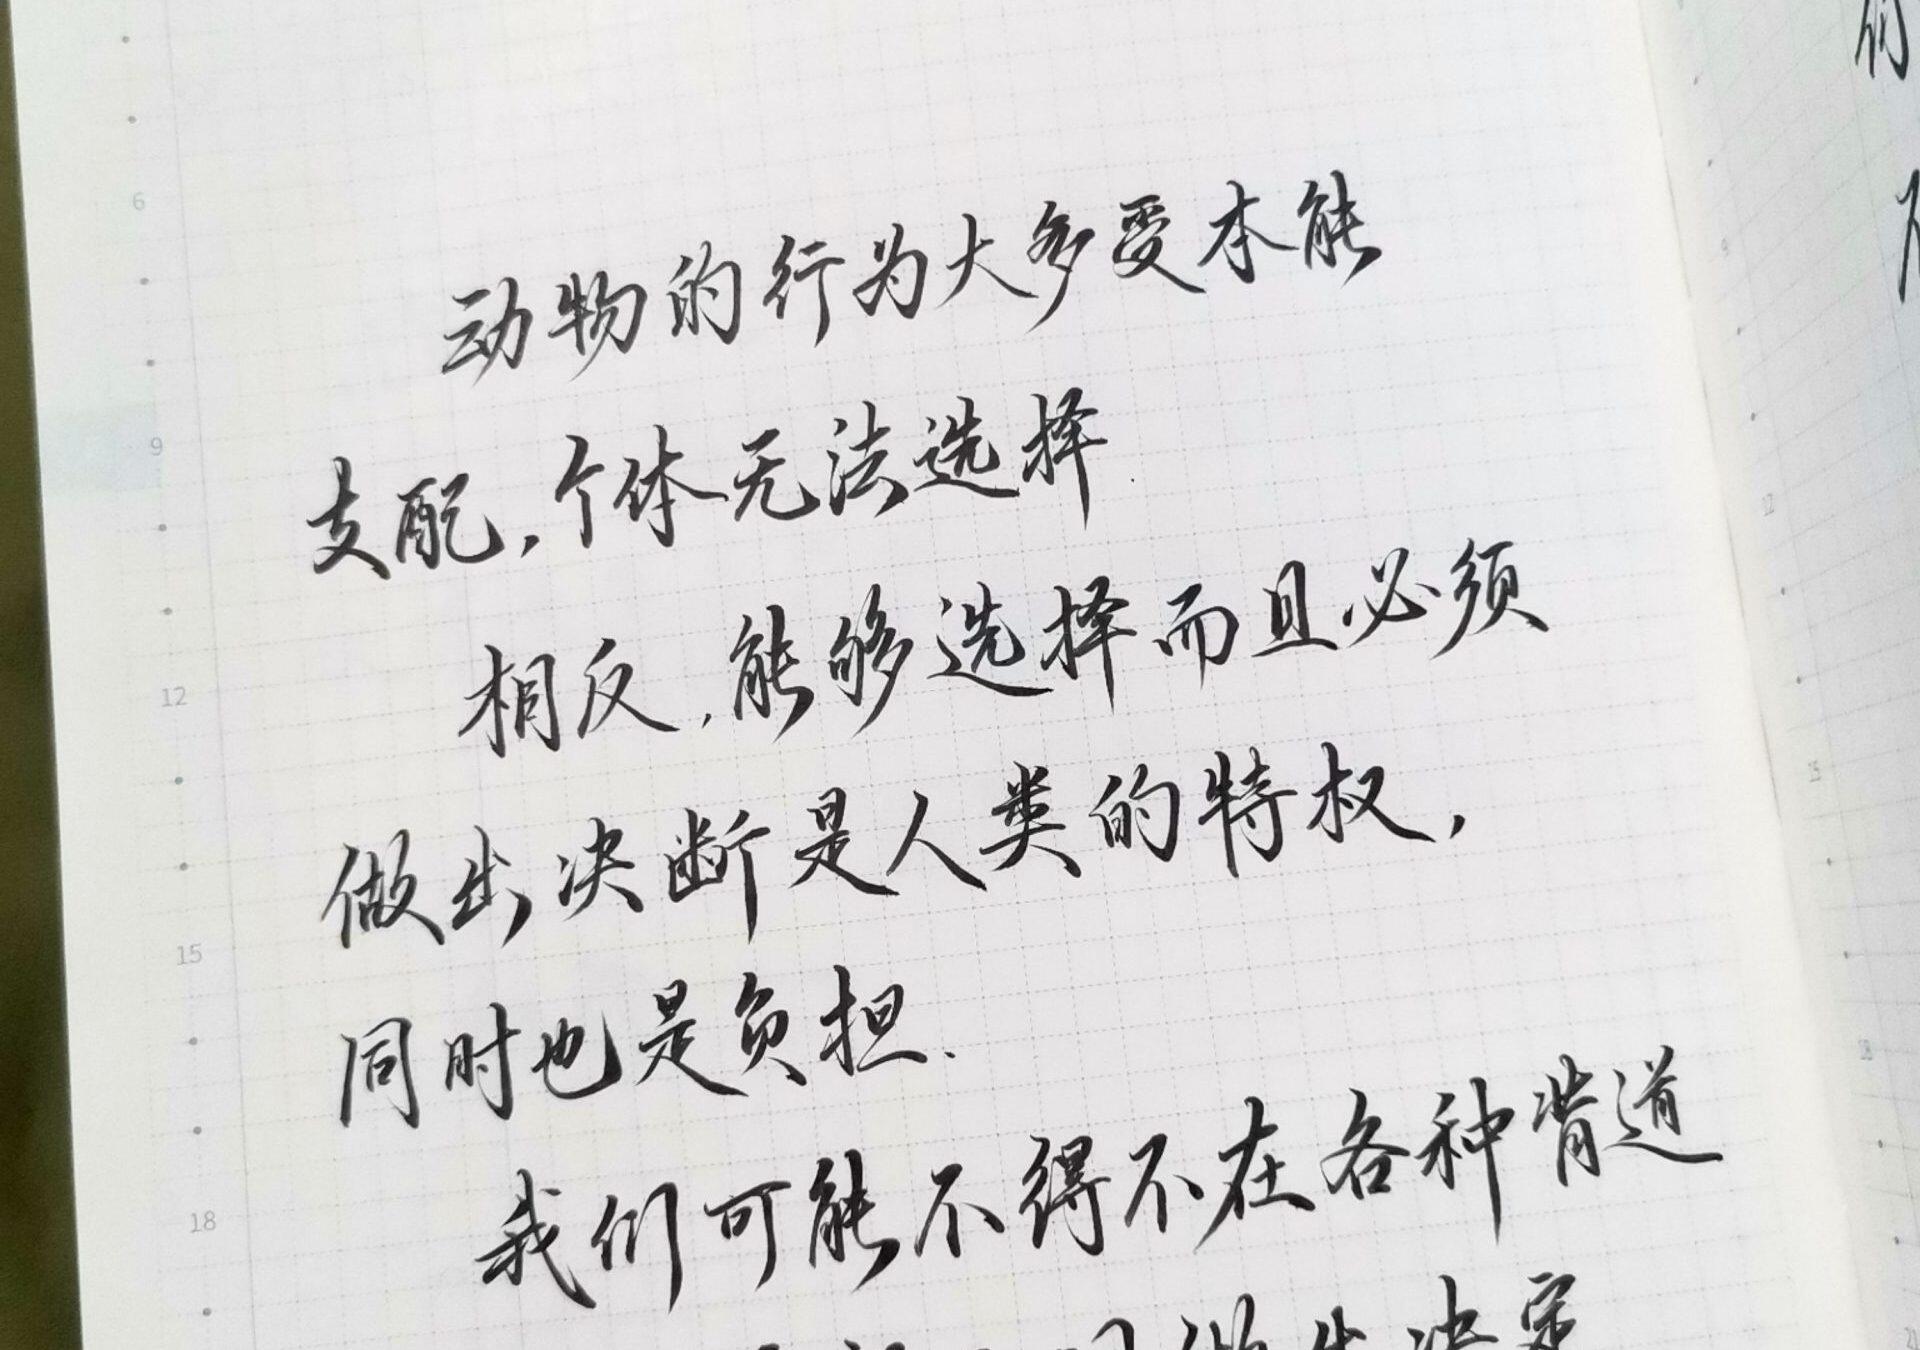 动物的行为大多受本能
支配,个体无法选择.
相反,能够选择而且必须
做出决断是人类的特权,
同时也是负担.
我们可能不得不在各种背道
做出决定
6
9
12
15
18